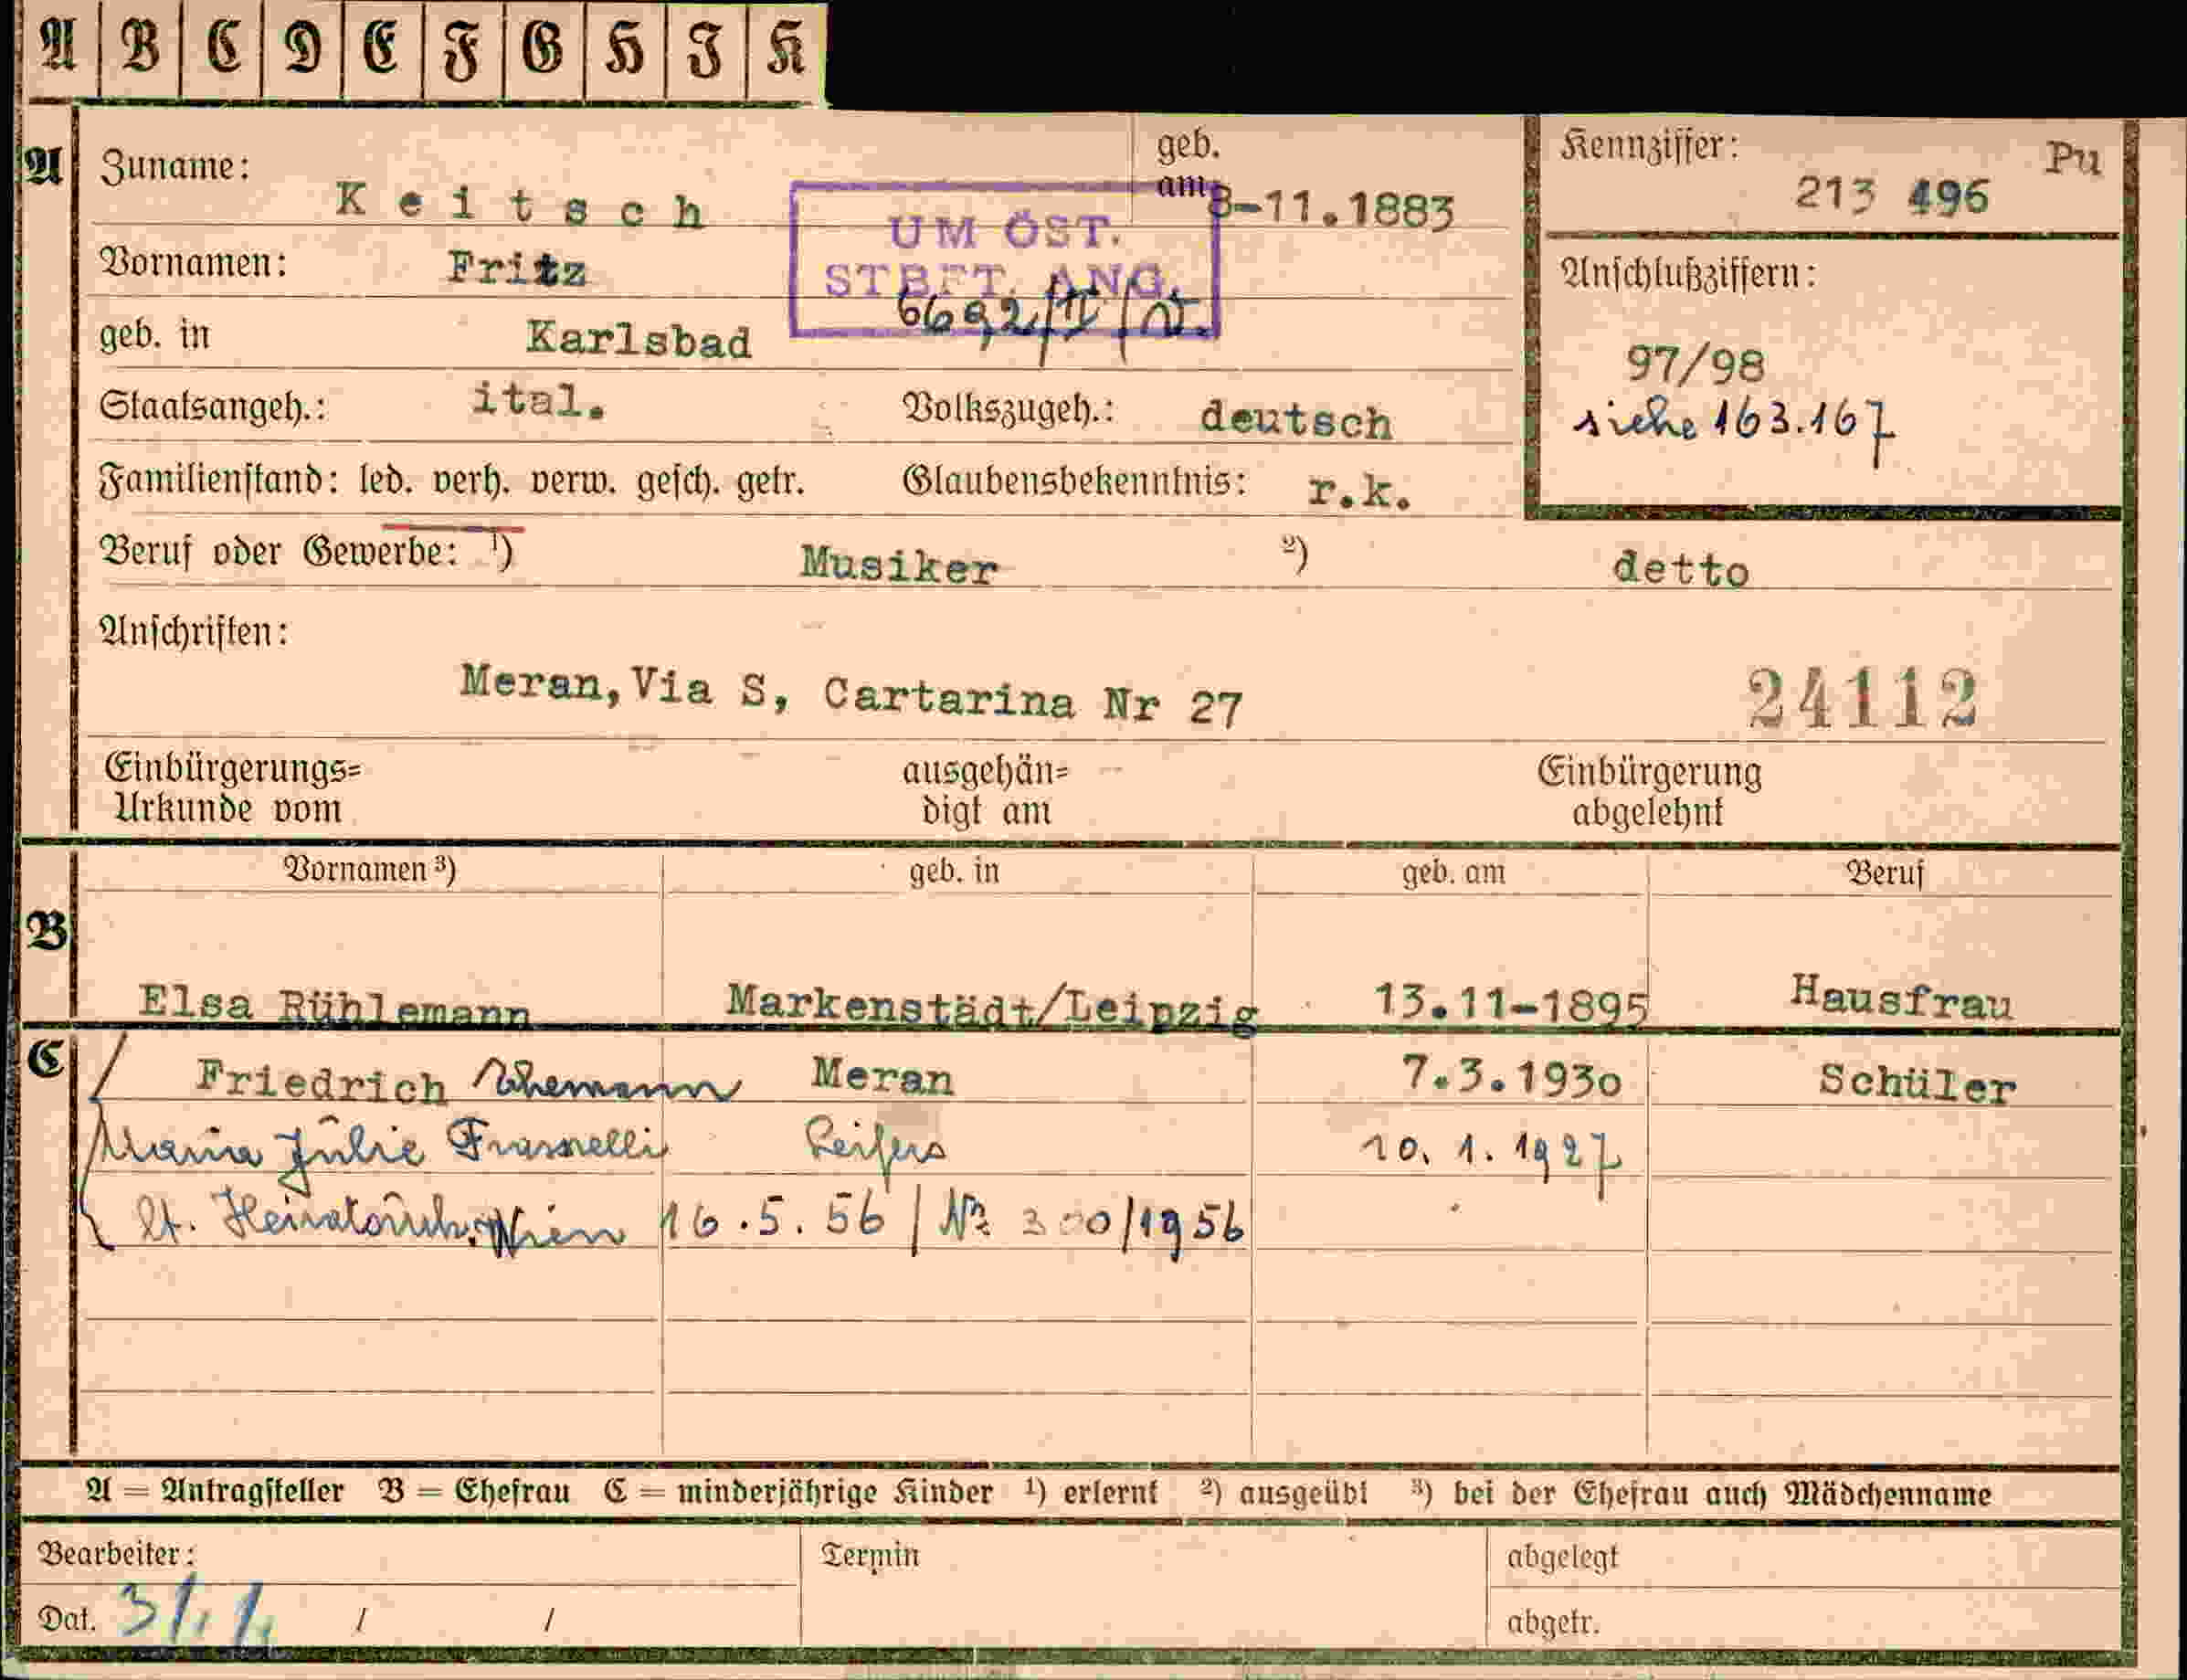 A B C D E F G H J K
A Zuname: K e i t s c h geb. am 8-11.1883
Kennziffer: Pu
213 496
UM ÖST.
STBFT. ANG.
6692/II/
Vornamen: Fritz
Anschlußziffern:
geb. in Karlsbad
97/98
Staatsangeh.: ital. Volkszugeh.: deutsch
siehe 163.167
Familienstand: led. verh. verw. gesch. getr. Glaubensbekenntnis: r.k.
Beruf oder Gewerbe: ¹) Musiker ²) detto
Anschriften:
Meran,Via S, Cartarina Nr 27
24112
Einbürgerungs= ausgehän= Einbürgerung
Urkunde vom digt am abgelehnt
Vornamen ³) geb. in geb. am Beruf
B
Elsa Rühlemann Markenstädt/Leipzig 13.11-1895 Hausfrau
C Friedrich Meran 7.3.1930 Schüler
Maria Julie Leifers 10. 1. 1927
lt. Wien 16.5.56 / No 300/1956
A = Antragsteller B = Ehefrau C = minderjährige Kinder ¹) erlernt ²) ausgeübt ³) bei der Ehefrau auch Mädchenname
Bearbeiter: Termin abgelegt
Dat. 31.1. / / abgetr.